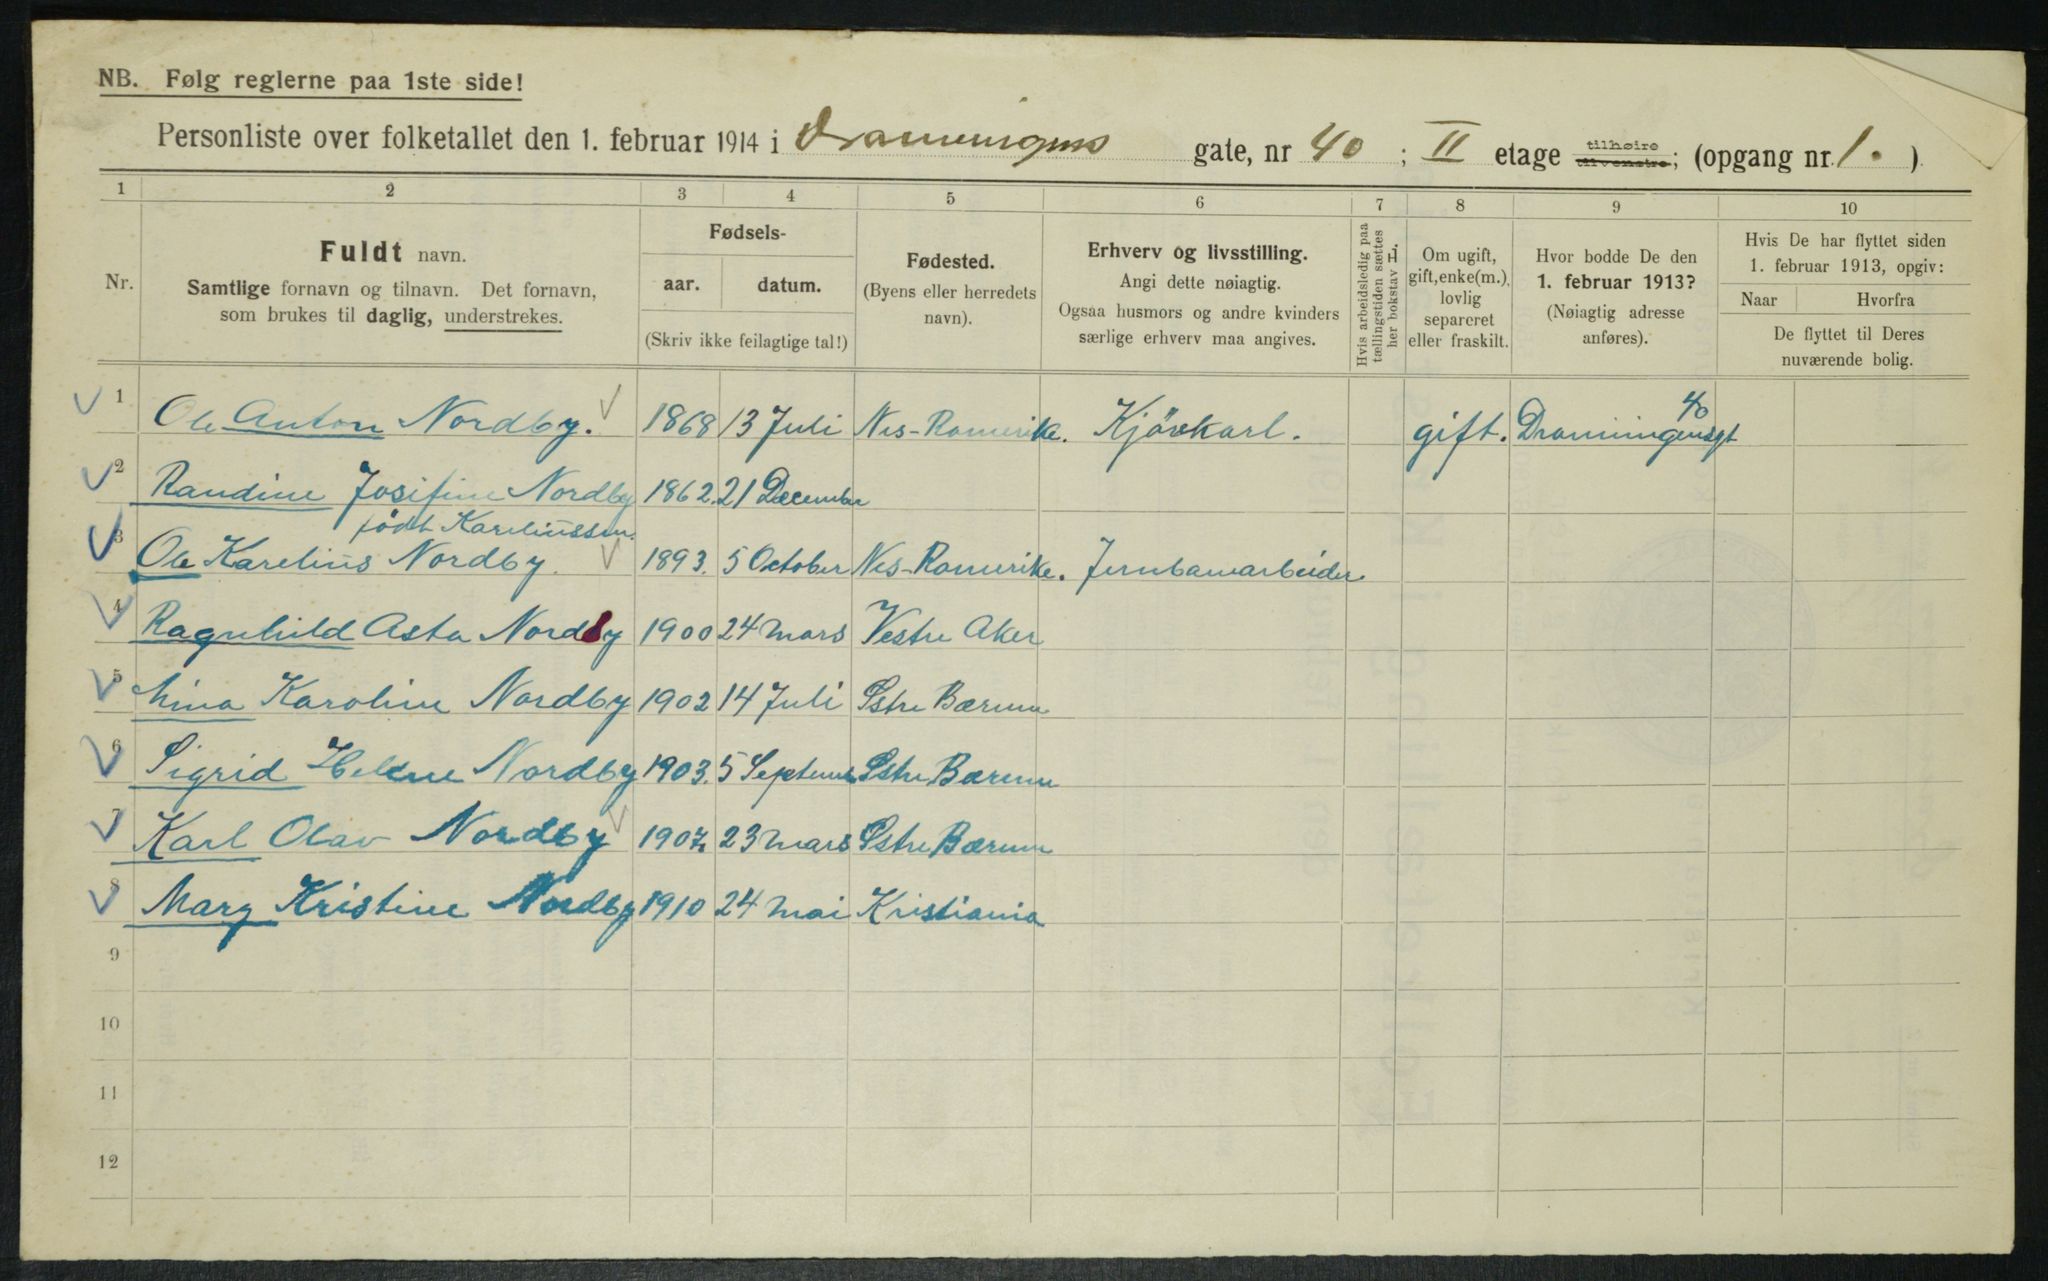 NB. Følg reglerne paa 1ste side!
Personliste over folketallet den 1. februar 1914 i Dronningens gate, nr 40 ; II etage tilhøire tilvenstre; (opgang nr. 1. )
1 2 3 4 5 6 7 8 9 10
Nr.
Fuldt navn.
Samtlige fornavn og tilnavn. Det fornavn,
som brukes til daglig, understrekes.
Fødsels-
aar. datum.
(Skriv ikke feilagtige tal!)
Fødested.
(Byens eller herredets
navn).
Erhverv og livsstilling.
Angi dette nøiagtig.
Ogsaa husmors og andre kvinders
særlige erhverv maa angives.
Hvis arbeidsledig paa
tællingstiden sættes
her bokstav L.
Om ugift,
gift, enke(m.),
lovlig
separeret
eller fraskilt.
Hvor bodde De den
1. februar 1913?
(Nøiagtig adresse
anføres).
Hvis De har flyttet siden
1. februar 1913, opgiv:
Naar Hvorfra
De flyttet til Deres
nuværende bolig.
1 Ole Anton Nordby. 1868 13 Juli Nes-Romerike. Kjørekarl. gift. Dronningensgt 40
2 Randine Josifine Nordby 1862. 21 December
født Kareliussen.
3 Ole Karelius Nordby. 1893. 5 October Nes-Romerike. Jernbanearbeider
4 Ragnhild Asta Nordby 1900 24 mars Vestre Aker
5 Nina Karoline Nordby 1902 14 Juli Østre Bærum
6 Sigrid Helene Nordby 1903. 5 Septemb Østre Bærum
7 Karl Olav Nordby 1907. 23 mars Østre Bærum
8 Mary Kristine Nordby 1910 24 mai Kristiania
9
10
11
12